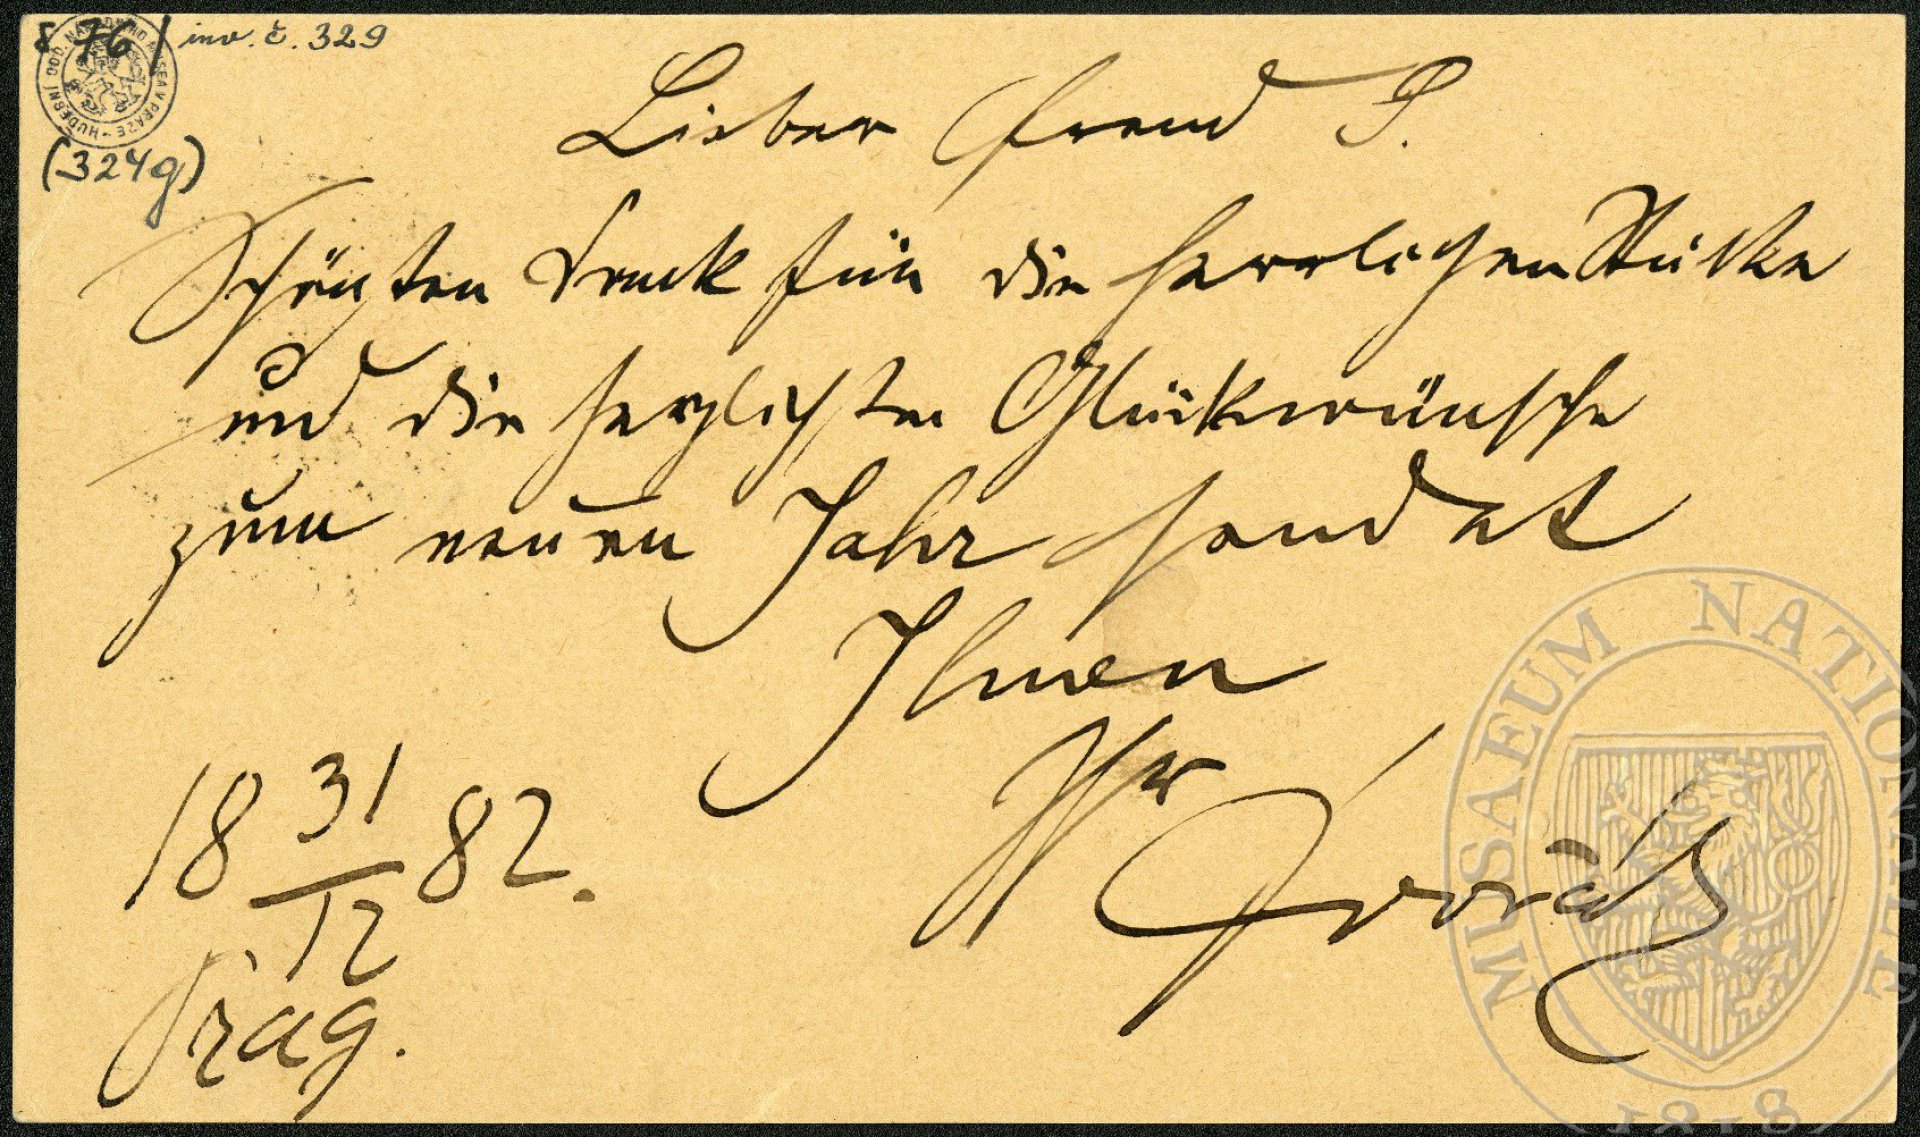 S. 76/ inv. č. 329
HUDEBNÍ ODD. NÁRODNÍHO MUSEA V PRAZE
(324g)
Lieber Freund S.
Schönsten Dank für die herrlichen Stücke
und die herzlichsten Glückwünsche
zum neuen Jahr sendet
Ihnen
Ihr
Dvořák
18 31/12 82.
Prag.
MUSAEUM NATIONALE
1818